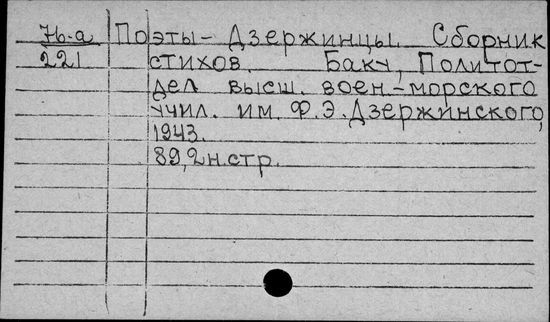 76-а Поэты- Дзержинцы. Сборник
221 стихов. Баку, Политот-
дел высш. воен.-морского
учил. им. Ф.Э.Дзержинского,
1943.
89,2н.стр.